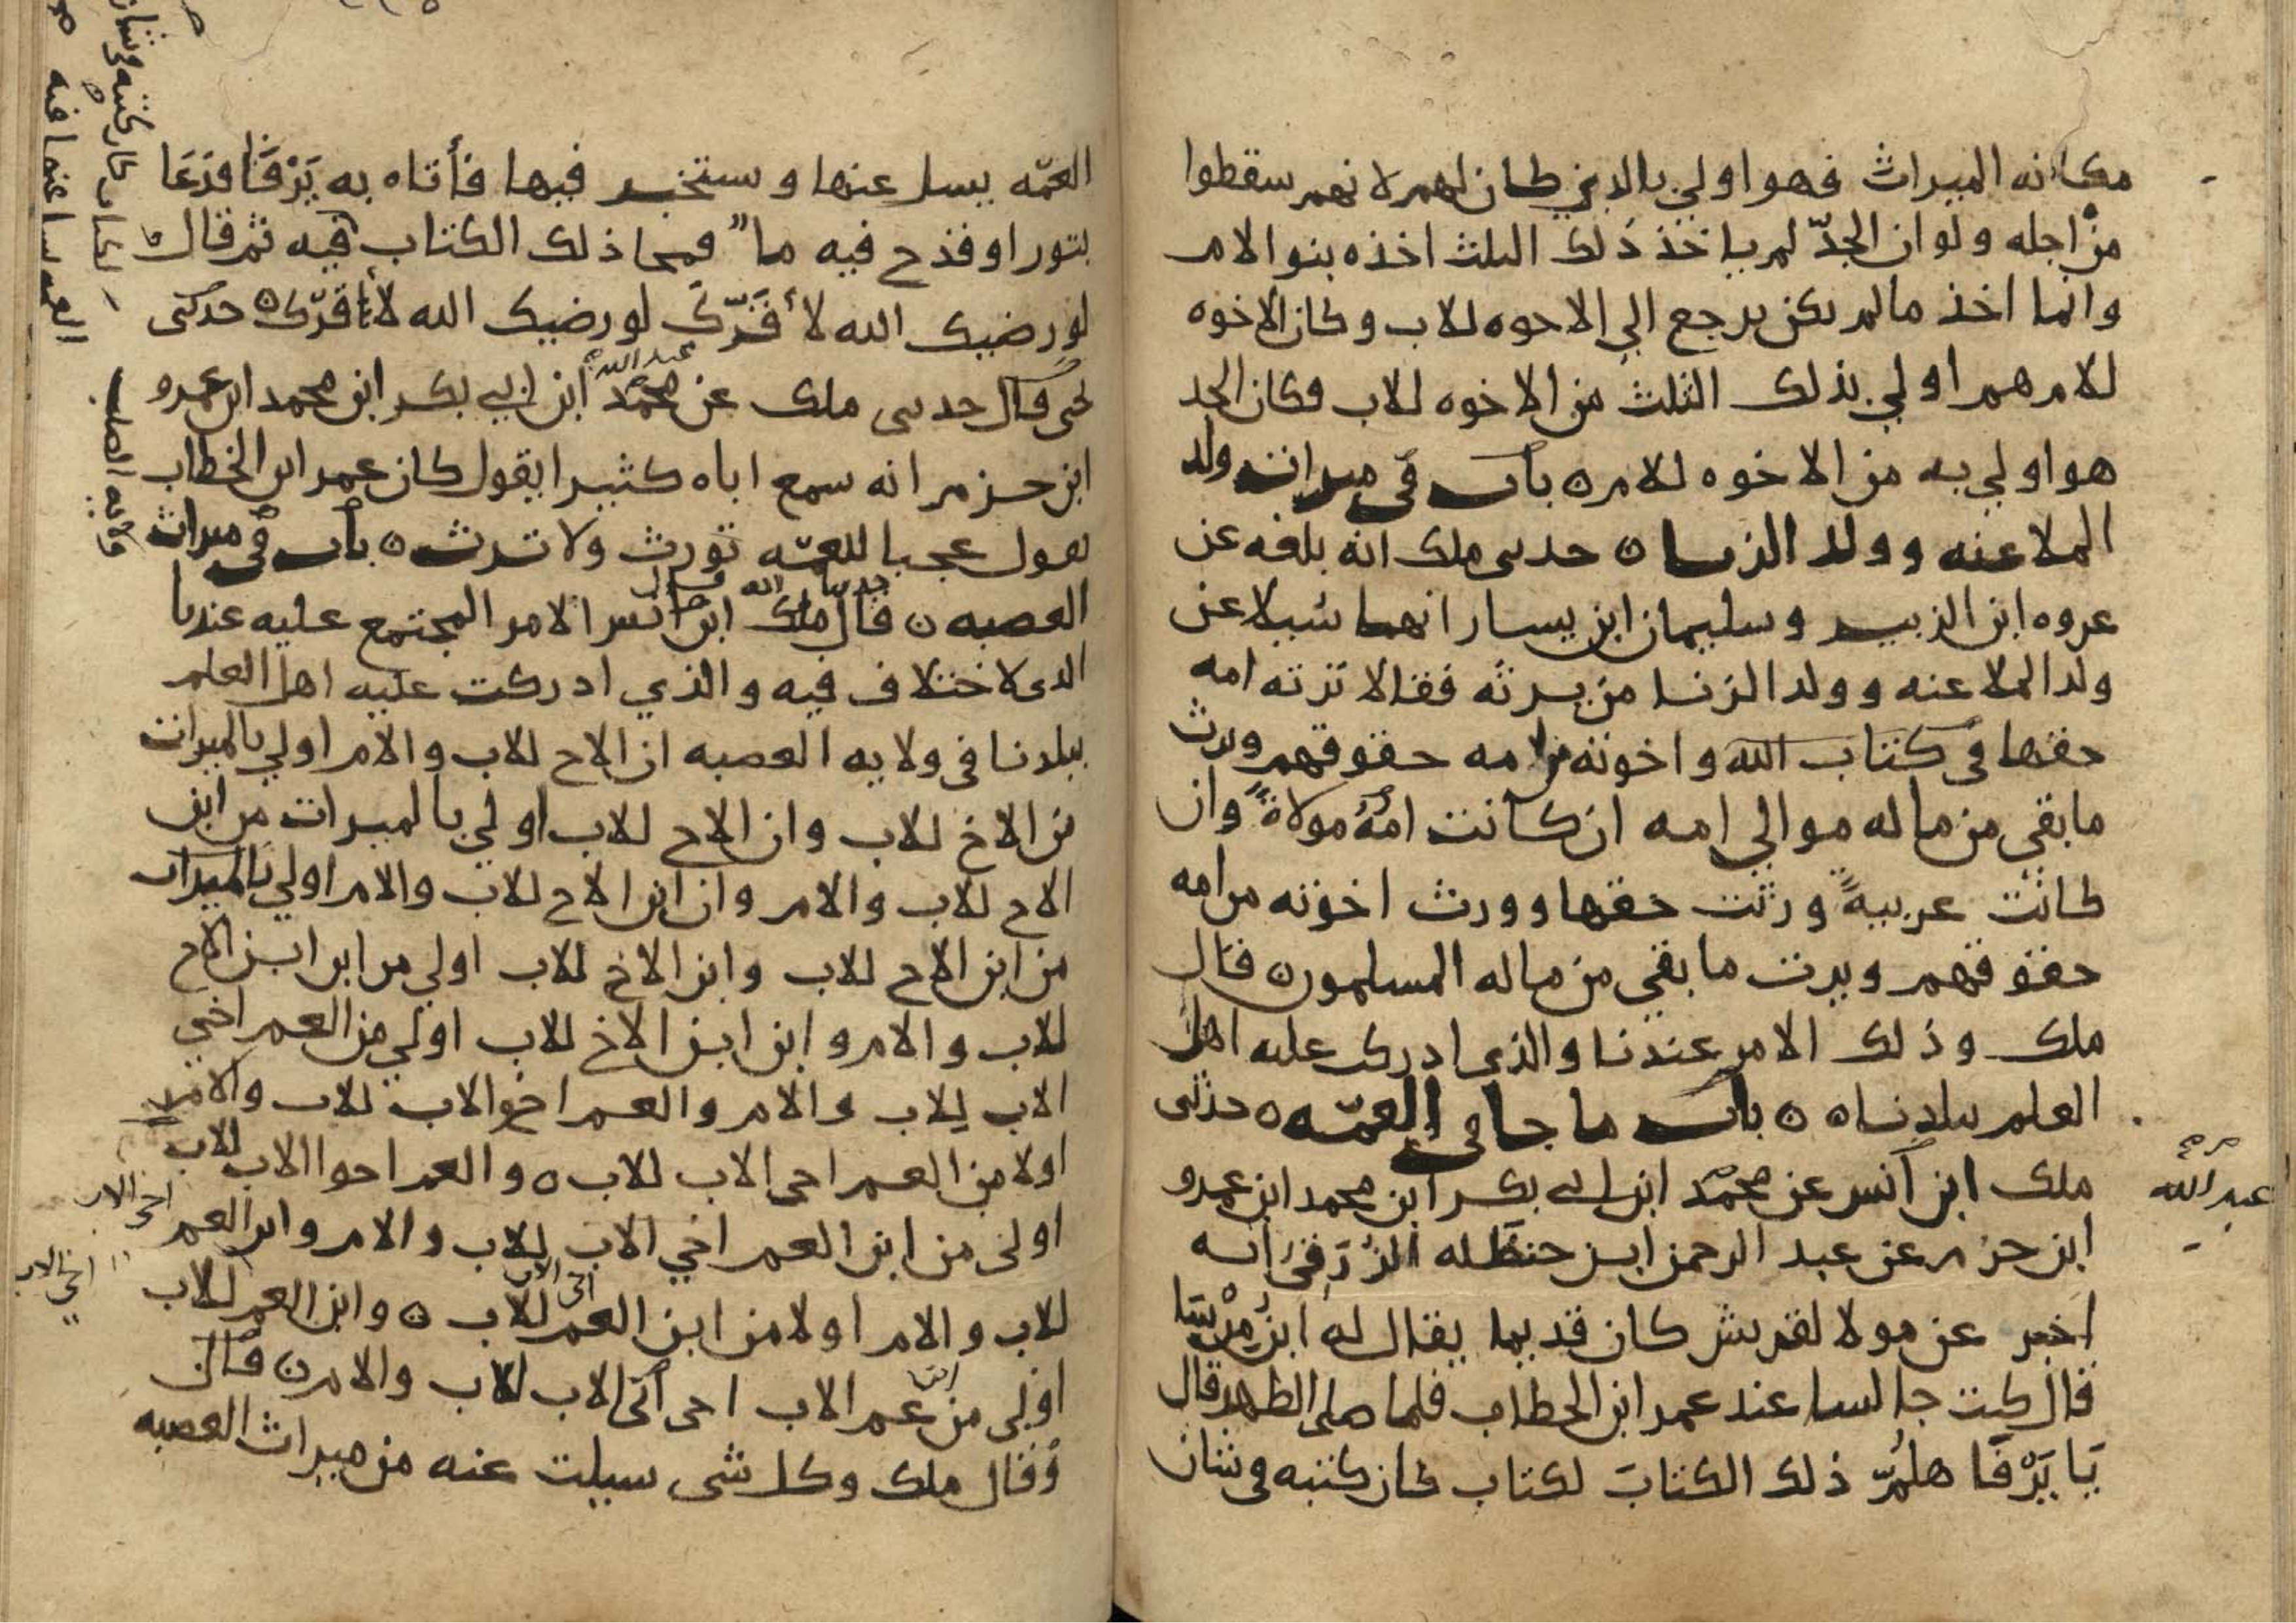 مكانه الميراث فهو اولي بالذي كان لهم لانهم سقطوا
من اجله ولو ان الجدّ لم ياخذ ذلك الثلث اخذه بنو الام
وانما اخذ مالم يكن يرجع الي الاخوه للاب وكان الاخوه
للام هم اولي بذلك الثلث من الاخوه للاب وكان الجد
هو اولي به من الاخوه للام ه باب في ميراث ولد
الملاعنه وولد الزنا ه حدثني ملك انه بلغه عن
عروه ابن الزبير وسليمان ابن يسار انهما سُيلا عن
ولد الملاعنه وولد الزنا من يرثه فقالا ترثه امه
حقها في كتاب الله واخوته من امه حقوقهم ويرث
ما بقي من ماله موالي امه ان كانت امُهُ مولاةً وان
كانت عربيةً ورثت حقها وورث اخوته من امه
حقوقهم ويرث ما بقي من ماله المسلمون ه قال
ملك وذلك الامر عندنا والذي ادركت عليه اهل
العلم ببلدنا ه ه باب ما جا في العمّه ه حدثني
ملك ابن انس عن محمد ابن ابي بكر ابن محمد ابن عمرو
عبد الله
ابن حزم عن عبد الرحمن ابن حنظله الزُرَقي انه
اخبر عن مولا لقريش كان قديما يقال له ابن مِرْسَا
قال كنت جالسا عند عمر ابن الخطاب فلما صلى الظهر قال
يَا يَرْفَا هلُمّ ذلك الكتابَ لكتاب كان كتبه في شان
العمّه يسل عنها وستخبر فيها فأتاه به يَرْفَا فدَعَا
بتور او قدح فيه ما فمحا ذلك الكتاب فيه ثم قال
لو رضيك الله لأقَرّكَ لو رضيك الله لأقرّك ه حدثني
يحيى قال حدثني ملك عن محمد ابن ابي بكر ابن محمد ابن عمرو
عبد الله
ابن حزم انه سمع اباه كثيرا يقول كان عمر ابن الخطاب
يقول عجبا للعمّه تورث ولا ترث ه باب في ميراث
العصبه ه قال ملك ابن انس الامر المجتمع عليه عندنا
الذي لا اختلاف فيه والذي ادركت عليه اهل العلم
ببلدنا في ولايه العصبه ان الاخ للاب والام اولي بالميراث
من الاخ للاب وان الاخ للاب اولي بالميراث من ابن
الاخ للاب والام وان ابن الاخ للاب والام اولي بالميراث
من ابن الاخ للاب وابن الاخ للاب اولي من ابن ابن الاخ
للاب والام وابن ابن الاخ للاب اولي من العم اخي
الاب للاب والام والعم اخو الاب للاب والام
اولا من العم اخي الاب للاب ه والعم اخوا الاب للاب
اولى من ابن العم اخي الاب للاب والام وابن العم
اخي الاب
للاب والام اولا من ابن العم للاب ه وابن العم للاب
اخي الاب
اخي الاب
اولى من عم الاب اخي ابي الاب للاب والام ه قال
وقال ملك وكل شي سيلت عنه من ميراث العصبه